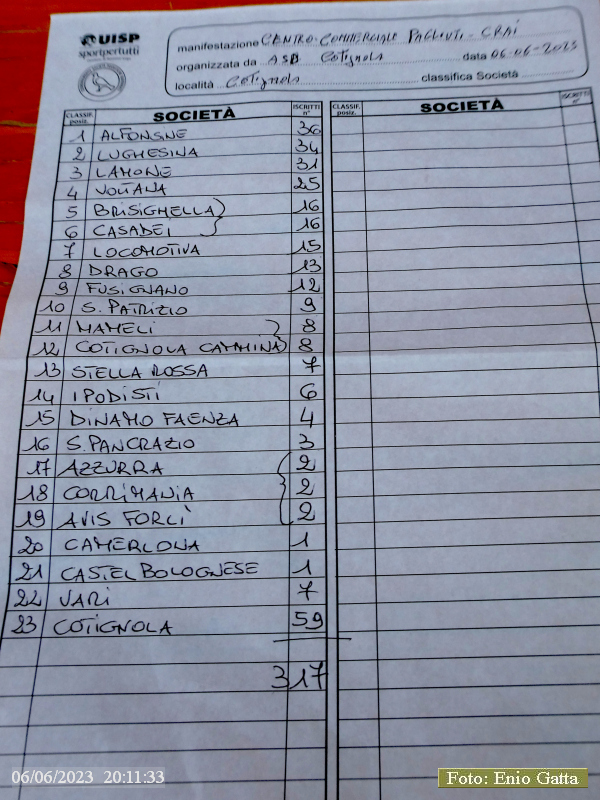 UISP
sportpertutti
manifestazione CENTRO-COMMERCIALE PAGLIUTI - CRAI
organizzata da ASD Cotignola data 06-06-2023
località Cotignola classifica Società
CLASSIF. posiz. SOCIETÀ ISCRITTI n° CLASSIF. posiz. SOCIETÀ ISCRITTI n°
1 ALFONSINE 36
2 LUGHESINA 34
3 LAMONE 31
4 VOLTANA 25
5 BRISIGHELLA 16
6 CASADEI 16
7 LOCOMOTIVA 15
8 DRAGO 13
9 FUSIGNANO 12
10 S. PATRIZIO 9
11 MAMELI 8
12 COTIGNOLA CAMMINA 8
13 STELLA ROSSA 7
14 IPODISTI 6
15 DINAMO FAENZA 4
16 S. PANCRAZIO 3
17 AZZURRA 2
18 CORRIMANIA 2
19 AVIS FORLÌ 2
20 CAMERLONA 1
21 CASTEL BOLOGNESE 1
22 VARI 7
23 COTIGNOLA 59
317
06/06/2023 20:11:33
Foto: Enio Gatta